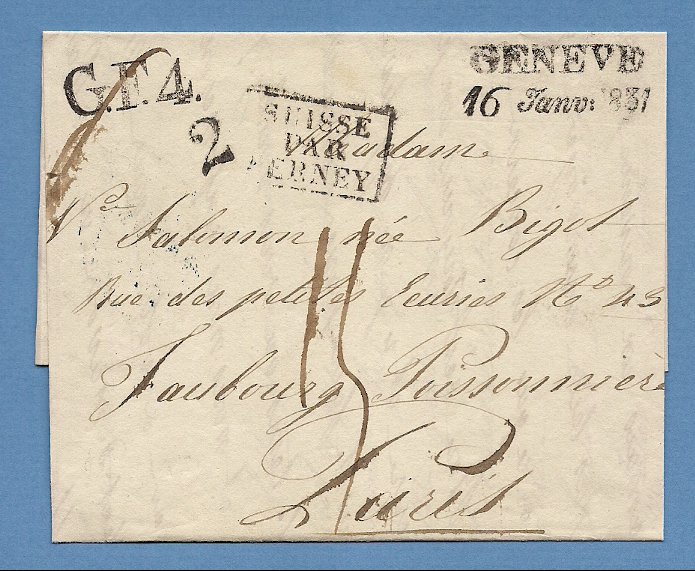 G.F.4.
GENEVE
16 Janv: 1831
2
SUISSE
PAR
FERNEY
Madame
Vve Salomon née Bigot
Rue des petites Ecuries No 43
Faubourg Poissonnière
15
Paris